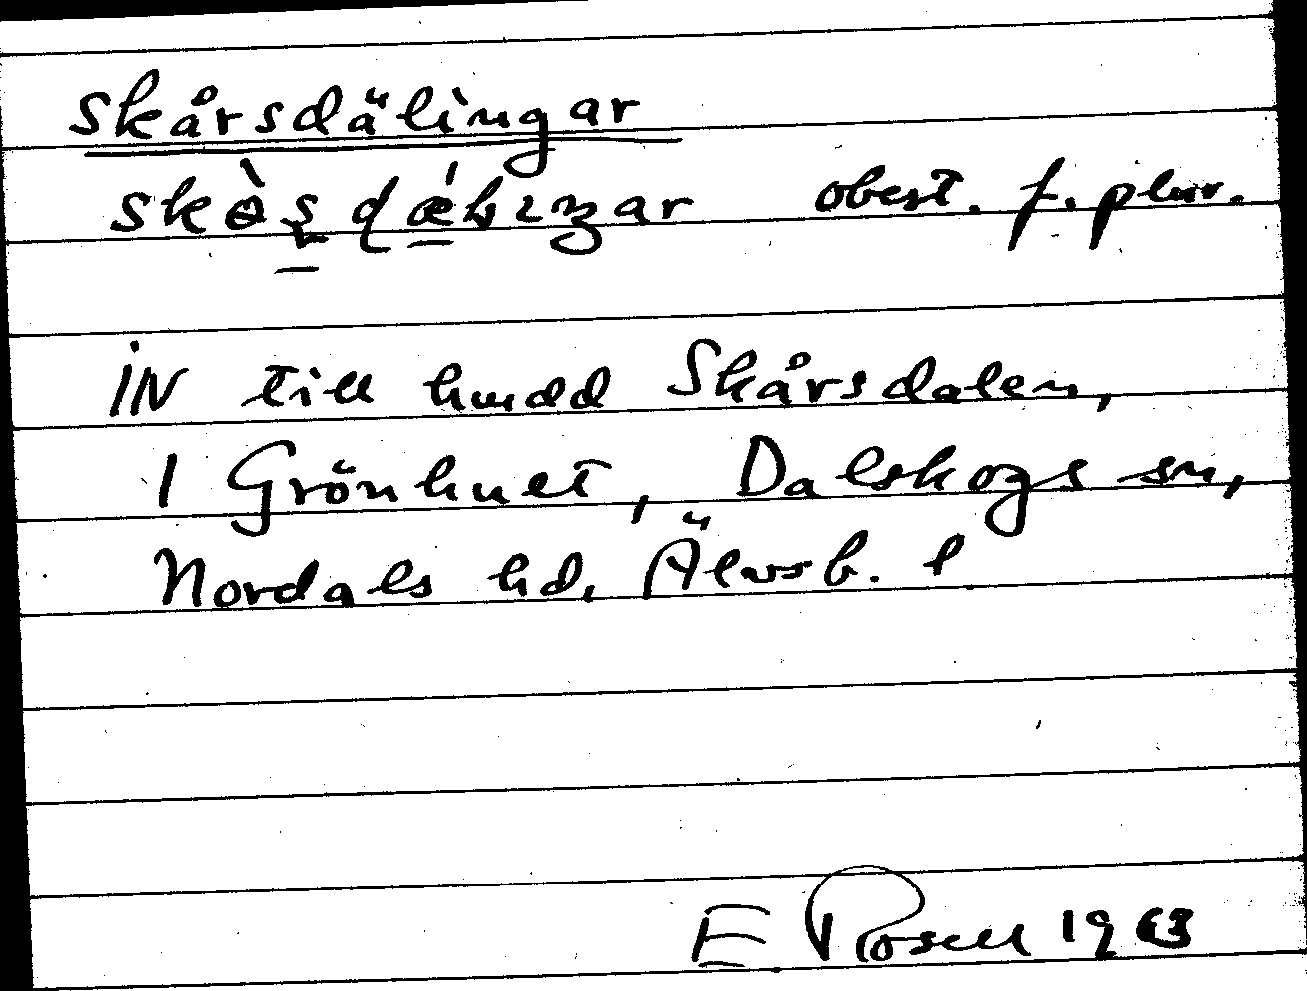 skårsdälingar
obest. f. plur.
IN till hmdd Skårsdalen,
1 Grönhuet, Dalskogs sn,
Nordals hd. Älvsb. l
E Rosell 1963